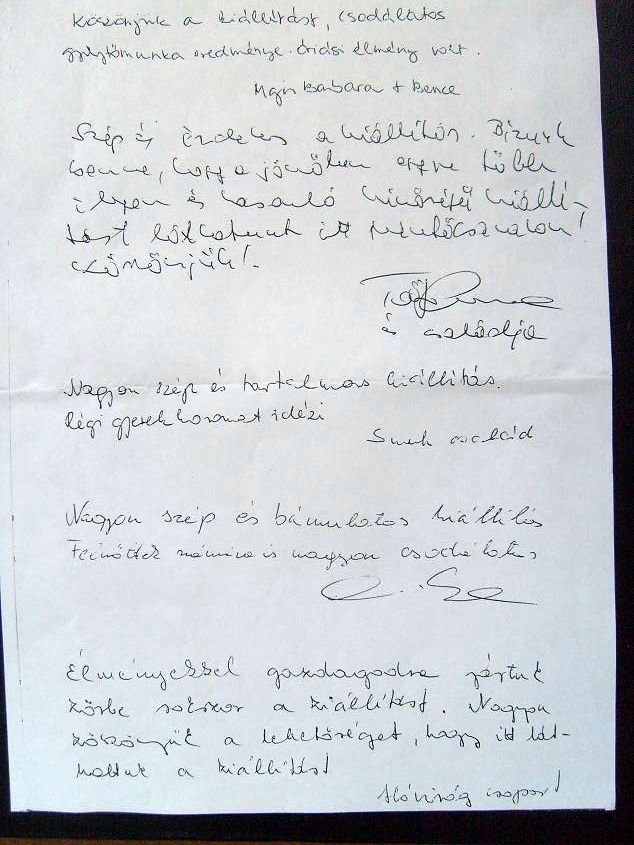 Köszönjük a kiállítást, csodálatos
gyűjtőmunka eredménye. Óriási élmény volt.
Barbara + Bence
Szép és érdekes a kiállítás. Bízunk
benne, hogy a jövőben egyre több
ilyen és hasonló kiállí-
tást láthatunk itt
Köszönjük!
és családja
Nagyon szép és tartalmas kiállítás.
Régi gyerekkoromat idézi
család
Nagyon szép és bámulatos kiállítás
Felnőttek számára is nagyon csodálatos
Élményekkel gazdagodva jártuk
körbe sokszor a kiállítást. Nagyon
köszönjük a lehetőséget, hogy itt lát-
hattuk a kiállítást
Hóvirág csoport